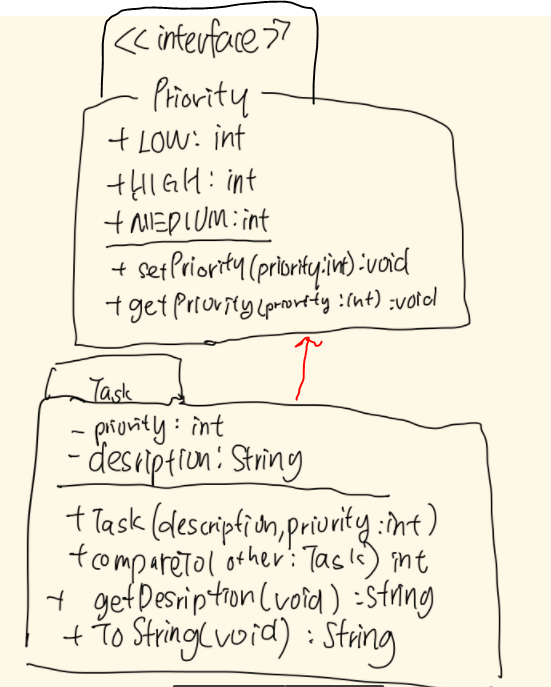 <<interface>>
Priority
+ LOW: int
+ HIGH: int
+ MEDIUM: int
+ setPriority(priority:int):void
+ getPriority(priority:int):void
Task
- priority: int
- desription: String
+ Task(description,priority:int)
+ compareTo(other:Task) int
+ getDesription(void):String
+ ToString(void):String